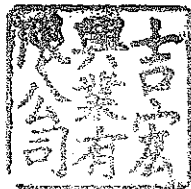 吉
興業有
限公司